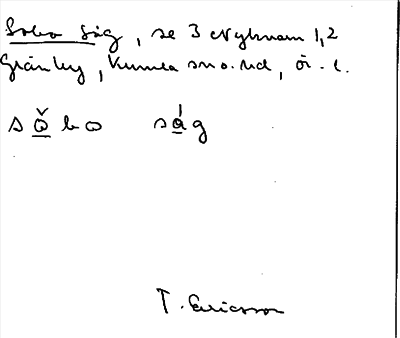 Sobo såg, se 3 Nyhem 1,2
Gränby, Kumla sn o. hd, Ör. l.
s ǒ b o såg
T. Ericsson